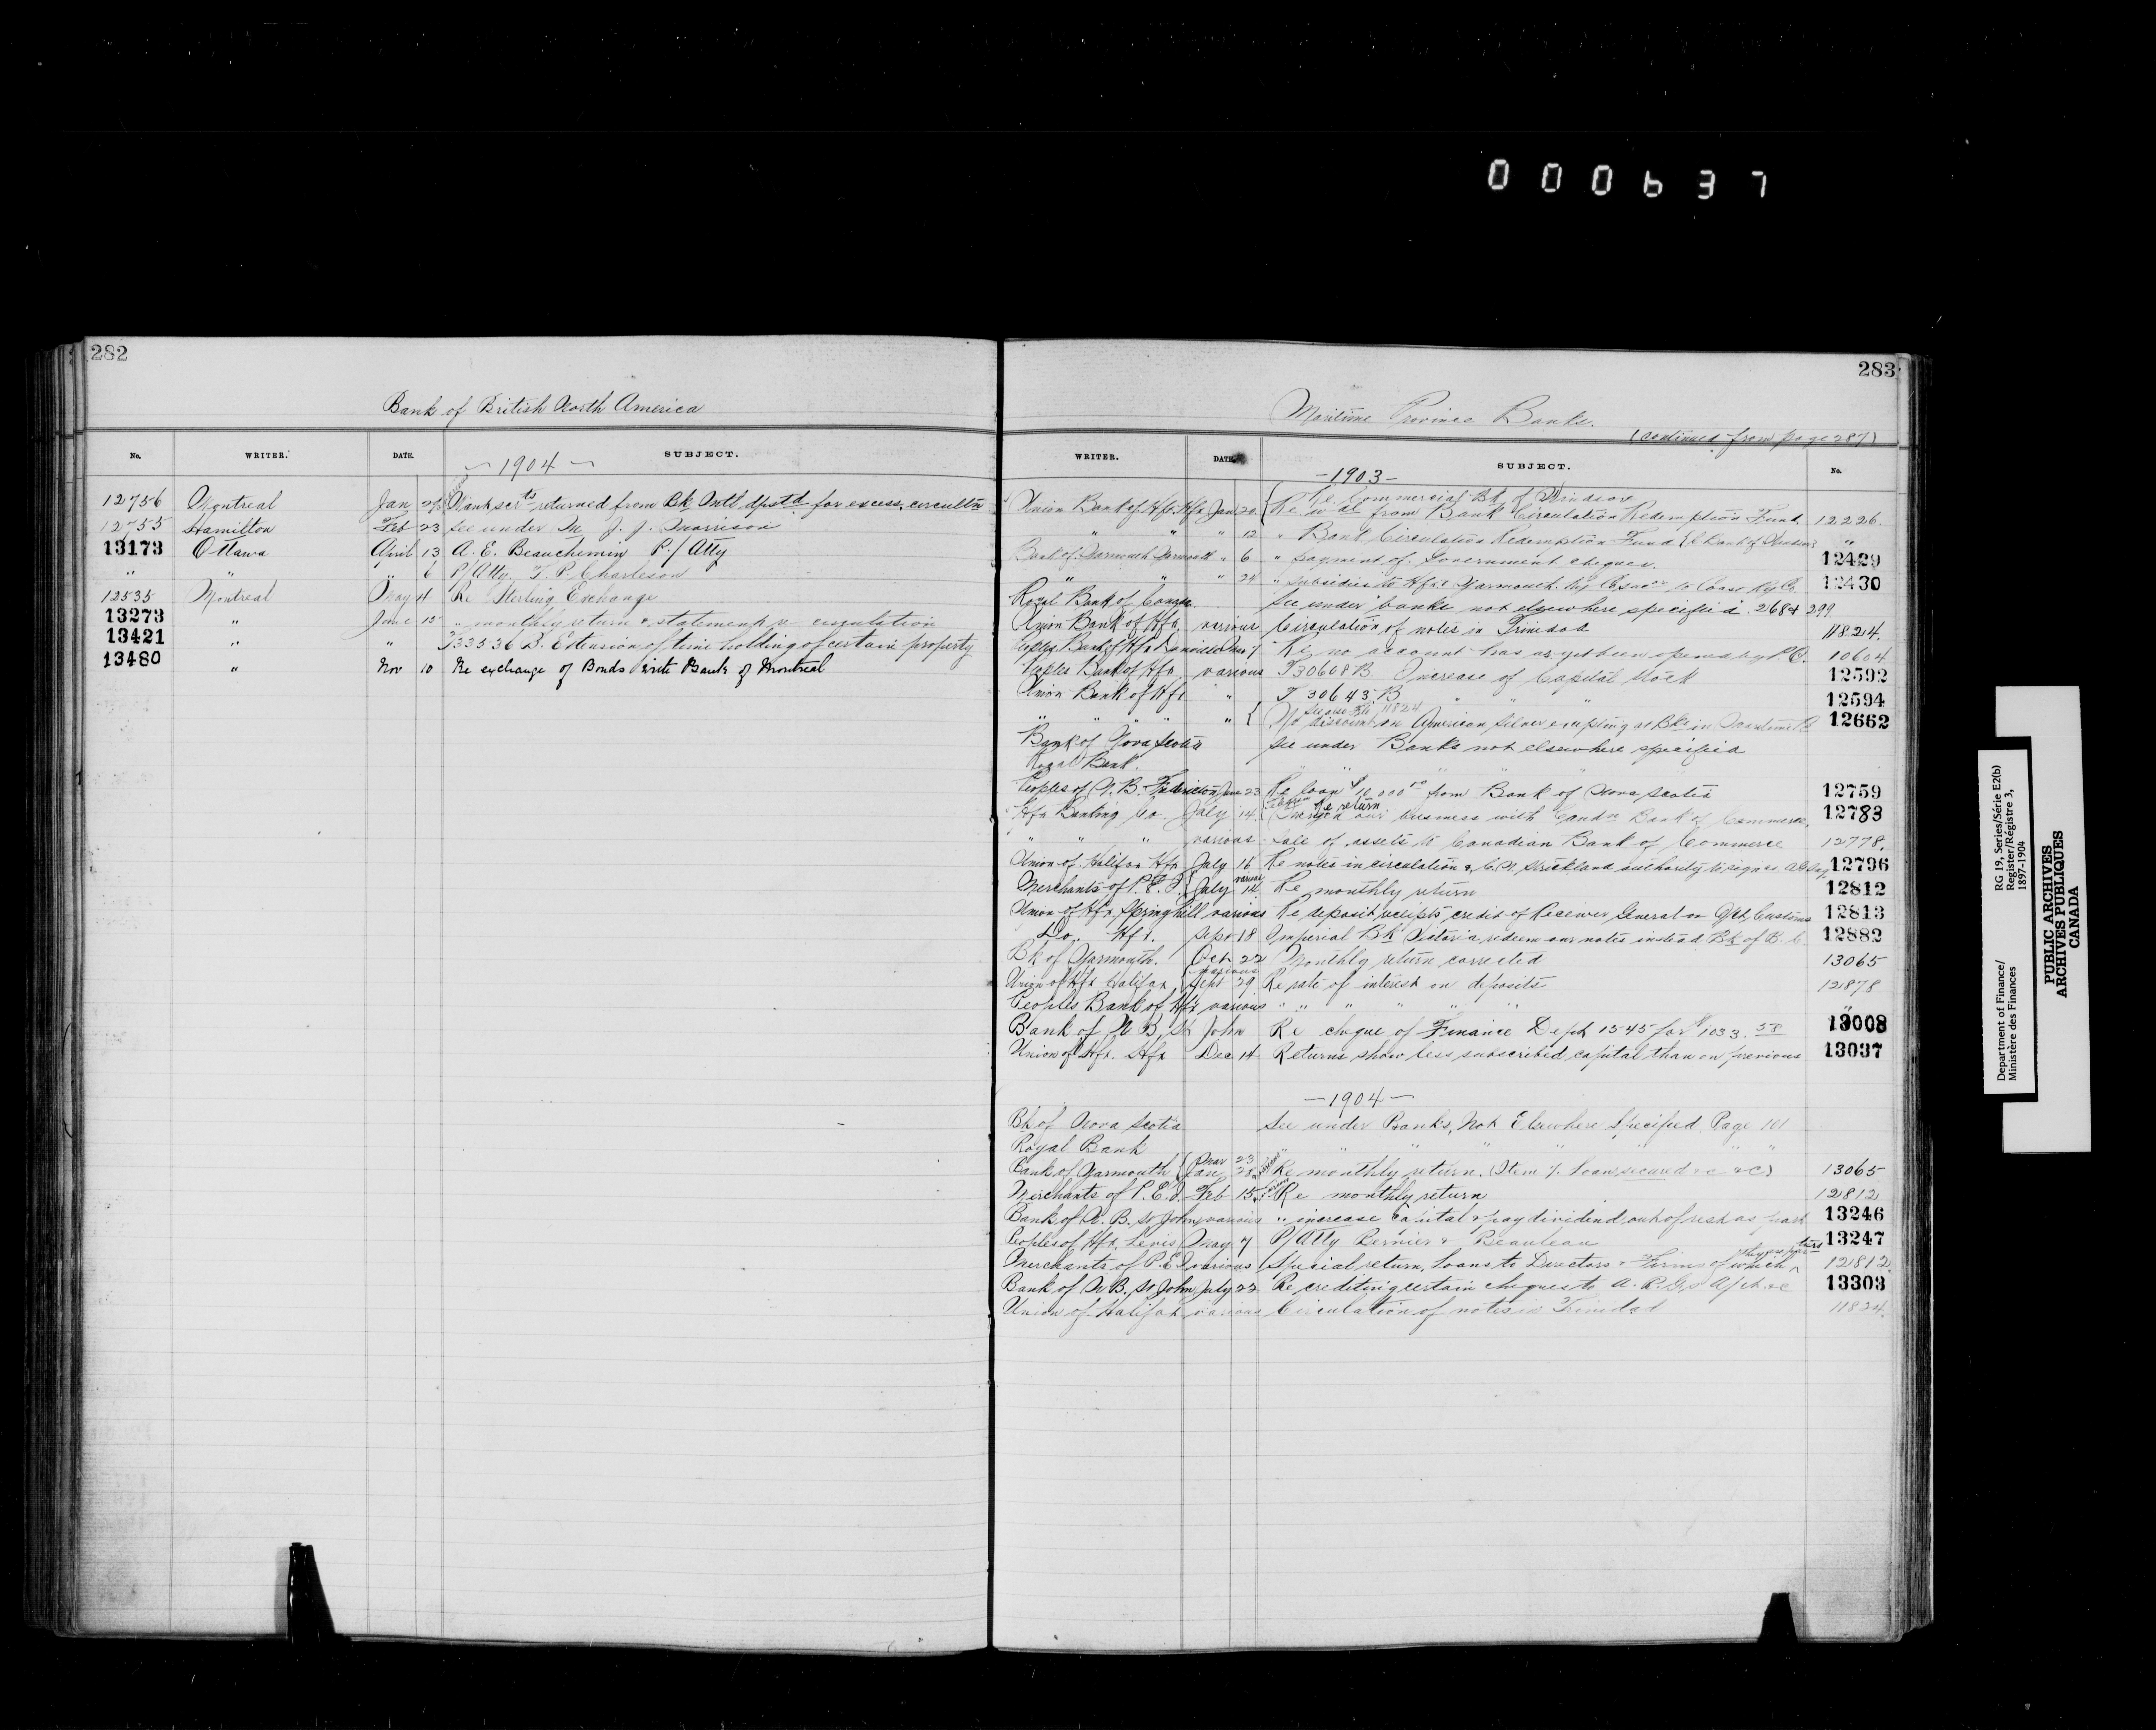 000637
282
Bank of British North America
No. WRITER. DATE. SUBJECT.
— 1904 —
12756 Montreal Jan returned from Bk Mtl dpstd for excess circultn
12755 Hamilton Feb 23 See under M J. J. Morrison
13173 Ottawa April 13 A. E. Beauchemin P/Atty
" " " 6 P/Atty T. P. Charleson
12535 Montreal May 4 Re Sterling Exchange
13273 " June 15 " monthly return & statement re circulation
13421 " " J33536 B. Extension of time holding of certain property
13480 " Nov 10 Re exchange of Bonds with Bank of Montreal
283
Maritime Province Banks.
(Continued from page 287)
WRITER. DATE. SUBJECT. No.
— 1903 —
Re Commercial Bk of Windsor
Union Bank of Hfx Hfx Jan 20 from Bank Circulation Redemption Fund. 12226.
" " " 12 " Bank Circulation Redemption Fund "
Bank of Yarmouth Yarmouth " 6 " payment of Government cheques. 12429
" " " 24 " Subsidies to Hfx & Yarmouth Ry Co 12430
Royal Bank of Canada See under banks not elsewhere specified 268 & 299
Union Bank of Hfx. various Circulation of notes in Trinidad 11824.
Peoples Bank of Hfx 7 Re no account has as yet been opened by P.O. 10604
Peoples Bank of Hfx. various J30608B Increase of Capital Stock 12592
Union Bank of Hfx " J 30643 B " " " 12594
See also File 11824
" " " " " discount on American Silver 12662
Bank of Nova Scotia See under Banks not elsewhere specified
Royal Bank. " " " "
Peoples of N. B. Fredericton June 23 Re loan $10,000 00 from Bank of Nova Scotia
12759
Re return
Hfx Banking Co. July 14 our business with Candn Bank of Commerce. 12783
" " " various Sale of assets to Canadian Bank of Commerce 12778.
Union of Halifax Hfx July 16 Re notes in circulation & C. N. Strickland authority to sign 12796
Merchants of P. E. I. July 14 various Re monthly return 12812
Union of Hfx Springhill various Re deposit receipts credit of Receiver General on Customs 12813
Do. Hfx. Sept 18 Imperial Bk Victoria redeem our notes instead Bk of B. C. 12882
Bk of Yarmouth. Oct 22 Monthly return corrected 13065
various
Union of Hfx Halifax Sept 29 Re rate of interest on deposits 12878
Peoples Bank of Hfx various " " " " " " "
Bank of N B, St John Re cheque of Finance Dept 1545 for $1033.58 13008
Union of Hfx. Hfx Dec 14 Returns show less subscribed capital than on previous 13037
— 1904 —
Bk of Nova Scotia See under Banks, Not Elsewhere Specified Page 101
Royal Bank " " " "
Mar 23
Bank of Yarmouth Jan 28 Re monthly return. (Item 7. Loans secured &c &c) 13065
Merchants of P. E. I. Feb 15 Re monthly return 12812
Bank of N. B. St John various " increase capital & pay dividend out of rest as part 13246
Peoples of Hfx, Levis May 7 P/Atty Bernier & Beaulieu 13247
they are partners
Merchants of P. E. I various Special return, Loans to Directors & Firms of which 12812.
Bank of N B. St John July 22 Re crediting certain cheques to A. R. G's A/ct &c 13303
Union of Halifax various Circulation of notes in Trinidad 11824.
Department of Finance/
Ministère des Finances
RG 19, Series/Série E2(b)
Register/Régistre 3,
1897-1904
PUBLIC ARCHIVES
ARCHIVES PUBLIQUES
CANADA